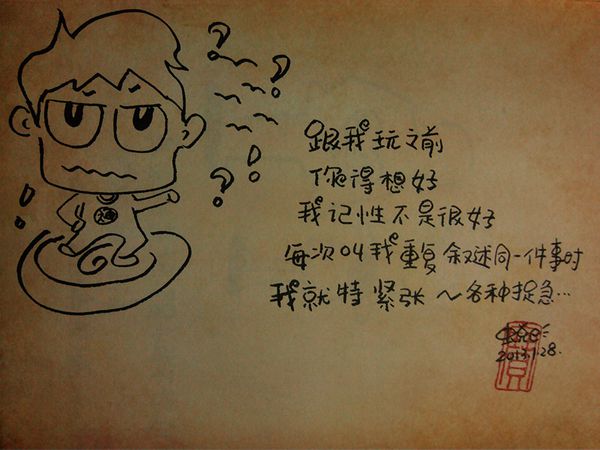 跟我玩之前
你得想好
我记性不是很好
每次叫我重复叙述同一件事时
我就特紧张～各种捉急…
2013.1.28.